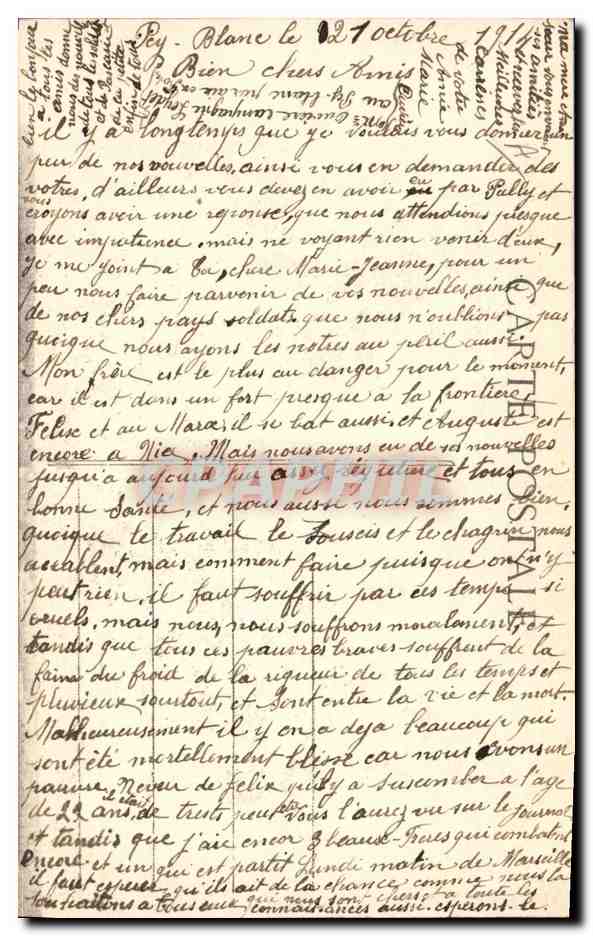 Pey-Blanc le 21 octobre 1914
Bien chers Amis
il y a longtemps que je voulais vous donner un
peu de nos nouvelles, ainsi vous en demander des
votres, d'ailleurs vous devez en avoir eu par Pally et
nous croyons avoir une reponse, que nous attendions presque
avec impatience, mais ne voyant rien venir d'eux,
je me joint a ta, chere Marie-Jeanne, pour un
peu nous faire parvenir de vos nouvelles, ainsi que
de nos chers pays soldats que nous n'oublions pas
quoique nous ayons les notres au péril aussi.
Mon frère est le plus au danger pour le moment,
car il est dans un fort presque a la frontiere,
Felise et au Maroc il se bat aussi et Auguste est
encore a Nice. Mais nous avons eu de ses nouvelles
jusqu'a aujourd'hui assez et tous en
bonne Santé, et nous aussi nous sommes bien,
quoique le travail le Souscis et le chagrin nous
accablent, mais comment faire puisque ont n'y
peut rien, il faut souffrir par ces temps si
cruels, mais nous, nous souffrons moralement, et
tandis que tous ces pauvres braves souffrent de la
faim du froid de la rigueur de tous les temps et
pluvieux surtout, et Sont entre la vie et la mort.
Malheureusement il y en a deja beaucoup qui
sont été mortellement blessé car nous avons un
pauvre, Neveu de felix qu'il y a suscomber a l'age
de 22 ans, il était de trests peut etre vous l'aurez vu sur le journal
et tandis que j'aie encor 3 beaux-Freres qui combattent
encore et un qui est partit Lundi matin de Marseille
il faut esperer qu'ils ait de la chance comme nous la
souhaitons a tous eux qui nous sont chers, et a toute les
connaissances aussi. esperons le.
de votre
Amie
Marie
bien le bonjour
à tous les
amies donne
nous des nouvelles
CARTE POSTALE
CPAPHIL